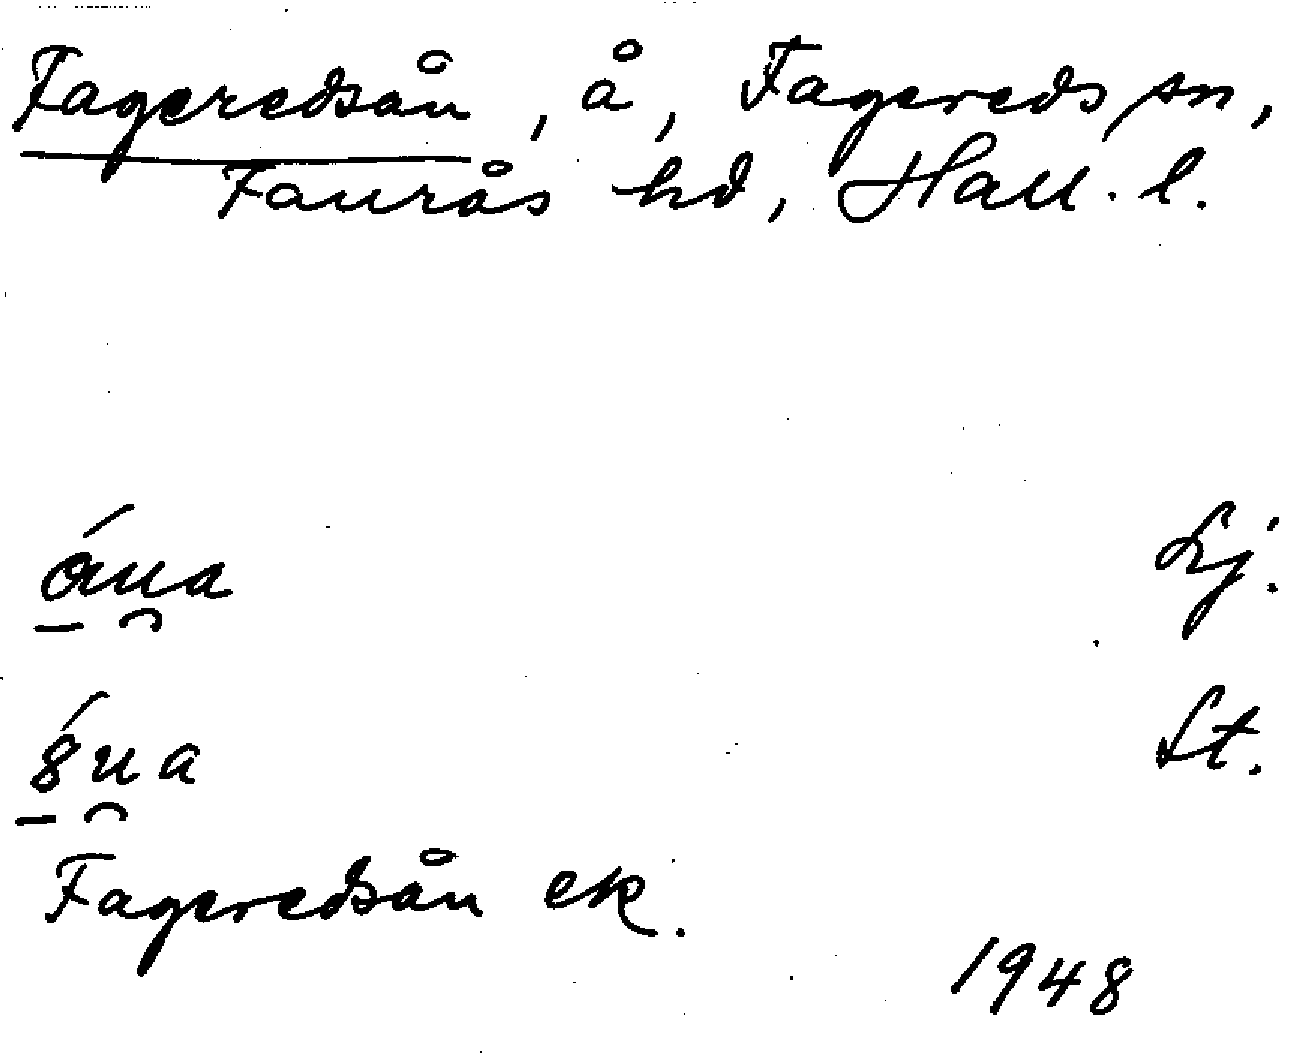 Fageredsån, å, Fagereds sn,
Faurås hd, Hall. l.
Lj.
St.
Fageredsån ek.
1948